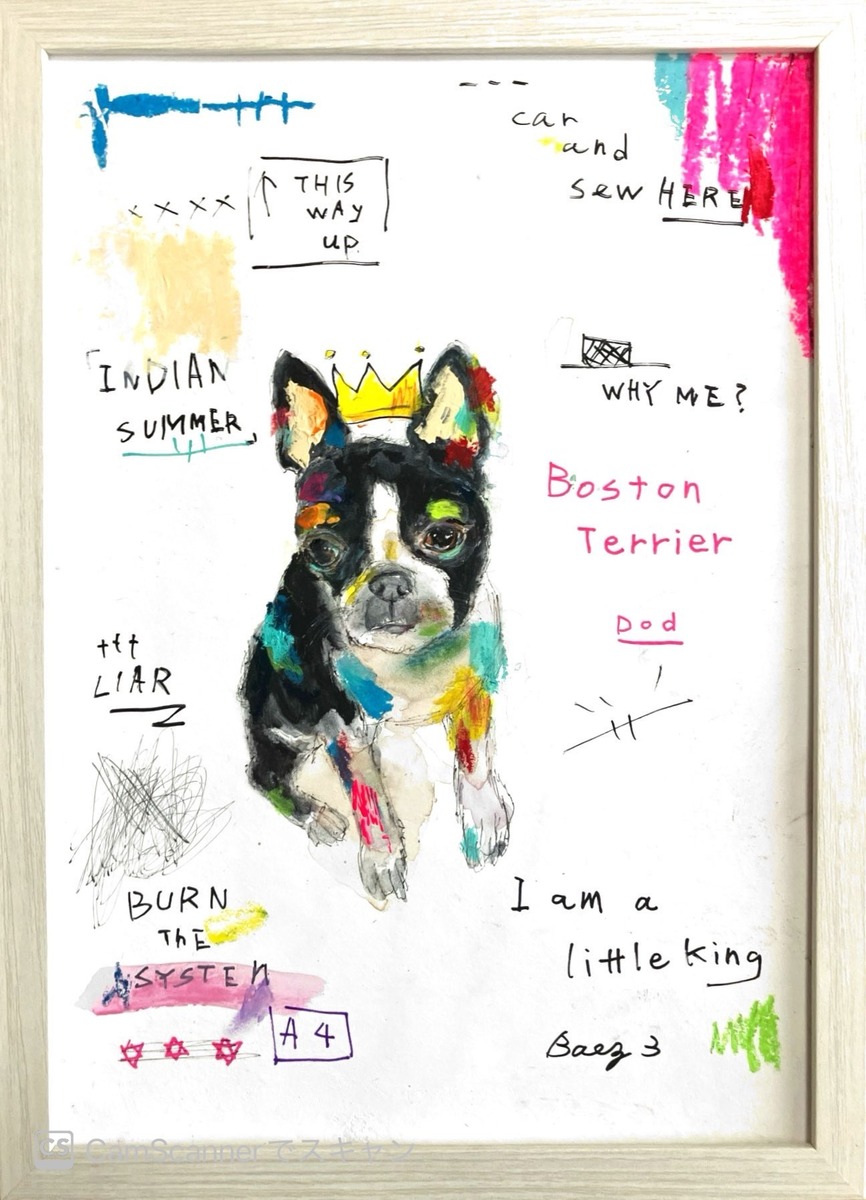 car
and
sew HERE
xxxx
↑ THIS
WAY
UP
INDIAN
SUMMER
WHY ME?
Boston
Terrier
Dod
LIAR
BURN
ThE
SYSTEM
A4
I am a
little King
Baez 3
CS CamScanner でスキャン